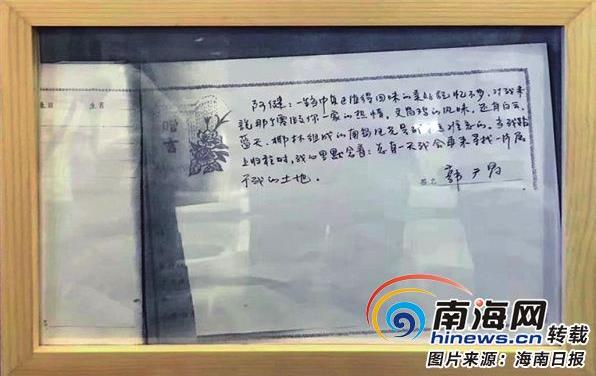 赠
言
阿健：一生中真正值得回味的美好记忆不多，对我来
说那个你一家的热情，文昌鸡的风味，还有白云、
蓝天、椰林组成的南国风光是难忘的。当我踏
上归程时，我心里默念着：总有一天我会再来寻找一片属
于我的土地。
签名
南海网
hinews.cn 转载
图片来源：海南日报